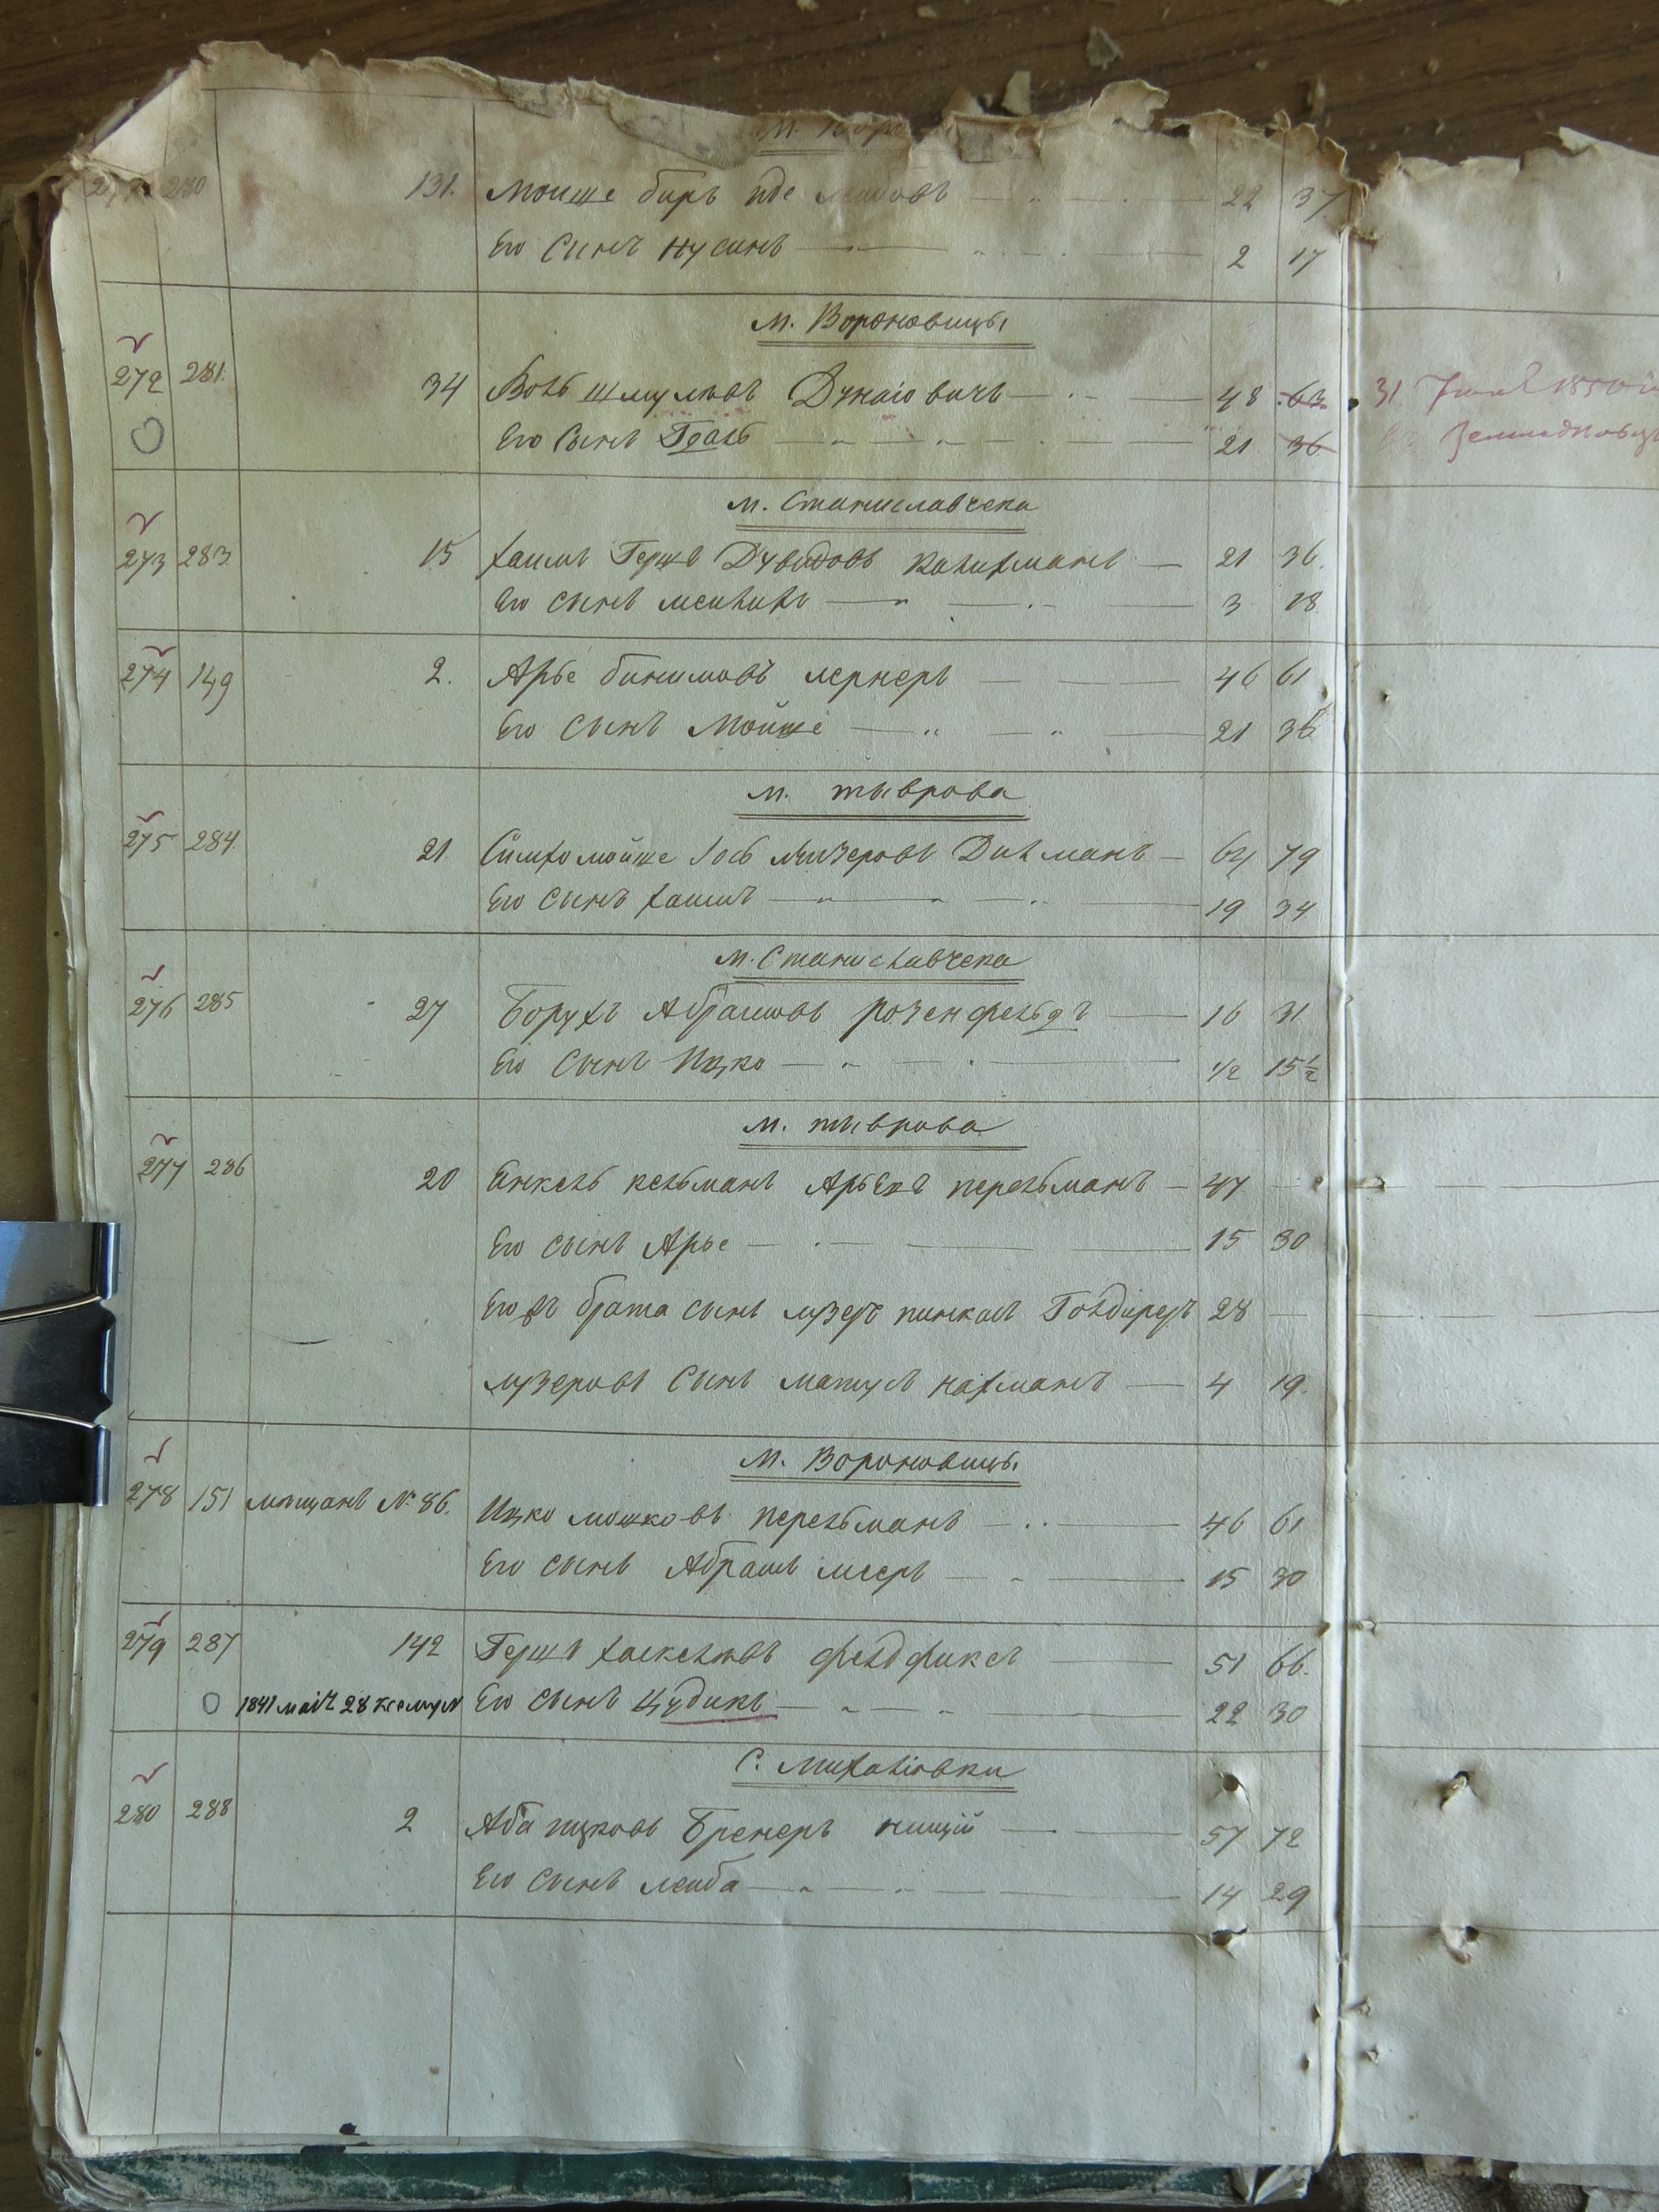 М.
280 131. Мошще беръ 22 37
Его Сынъ Нусинъ 2 17
М. Вороновицы
272 281. 34 Волъ Шмулювъ Дунаіовичъ 48 63. 31 1850
Его Сынъ Гдаль 21 36
М. Станиславчека
273 283. 15 Хаимъ Гершъ Дувидовъ Калихманъ 21 36.
Его Сынъ Мейлихъ 3 18
274 149 2. Арье Бинимовъ Лернеръ 46 61
Его Сынъ Мойше 21 36
М. Тыврова
275 284 21. Симхо Мойше Іось Лузеровъ Дихманъ 64 79
Его Сынъ Хаимъ 19 34
М. Станиславчека
276 285 27 Борухъ Абрамовъ Розенфельдъ 16 31
Его Сынъ Ицко 1/2 15 1/2
М. Тыврова
277 286 20 Янкель Кельманъ Арьевъ Перельманъ 47
Его Сынъ Арье 15 30
Его жъ брата Сынъ Лузеръ Пинхасъ 28
Лузеровъ Сынъ Нахманъ 4 19.
М. Вороновицы.
278 151 Мещанъ № 86. Ицко Мошковъ Перельманъ 46 61
Его Сынъ Абрамъ Мееръ 15 30
279 287 142 Гершъ Хаскелювъ Фельдфиксъ 51 66.
1841 28 Его Сынъ Цудикъ 22 30
С. Михалiовки
280 288 2 Аба Ицковъ Бренеръ нищій 57 72
Его Сынъ Лейба 14 29